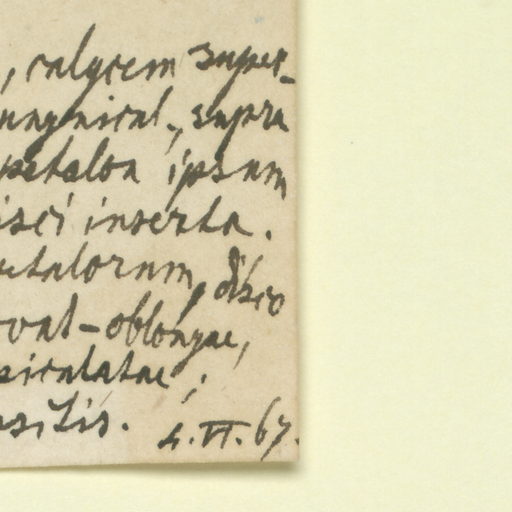 , calycem super-
unguical., supra
petala ipsam
isci inserta.
etalorum, disco
oval-oblongae,
piculatae;
4. VI. 67.